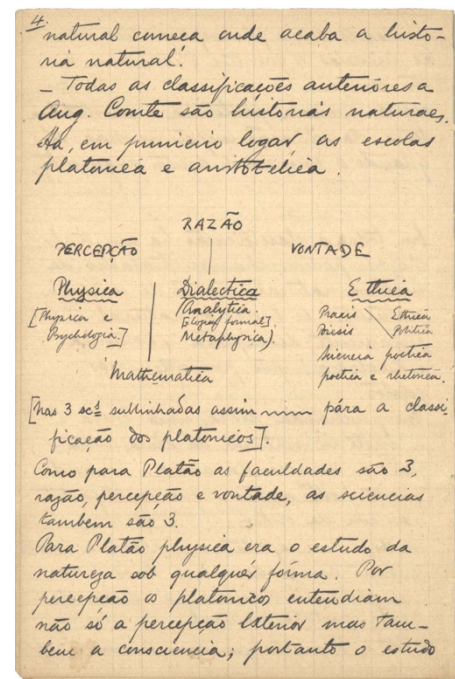 4.
natural começa onde acaba a histo-
ria natural.
– Todas as classificações anteriores a
Aug. Comte são historias naturaes.
Ha, em primeiro logar, as escolas
platonica e aristotelica.
RAZÃO
PERCEPÇÃO VONTADE
Physica Dialectica Ethica
[Physica e Analytica Praxis Ethica
Psychologia.] [Logica formal]. Politica
Metaphysica).
Sciencia poetica
Mathematica poetica e rhetorica.
[Nas 3 sc.s sublinhadas assim pára a classi-
ficação dos platonicos].
Como para Platão as faculdades são 3,
razão, percepção e vontade, as sciencias
tambem são 3.
Para Platão physica era o estudo da
natureza sob qualquér fórma. Por
percepção os platonicos entendiam
não só a percepção exterior mas tam-
bem a consciencia; portanto o estudo